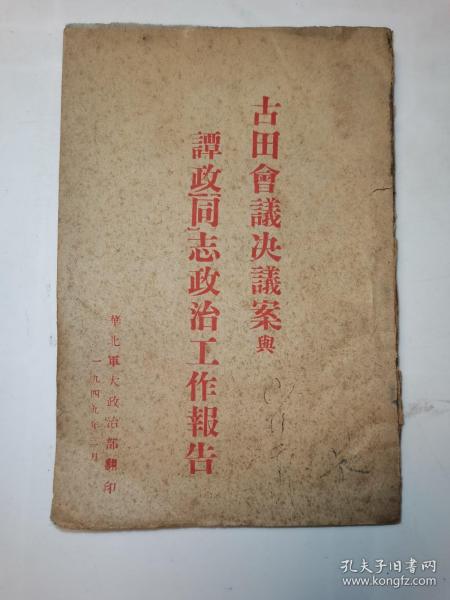 古田會議决議案與
譚政同志政治工作報告
華北軍大政治部翻印
一九四九年一月
孔夫子旧书网
www.kongfz.com